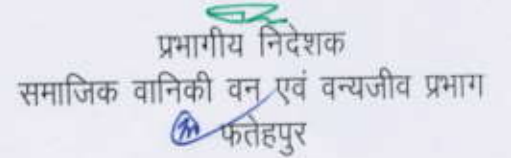 प्रभागीय निदेशक
समाजिक वानिकी वन एवं वन्यजीव प्रभाग
फतेहपुर